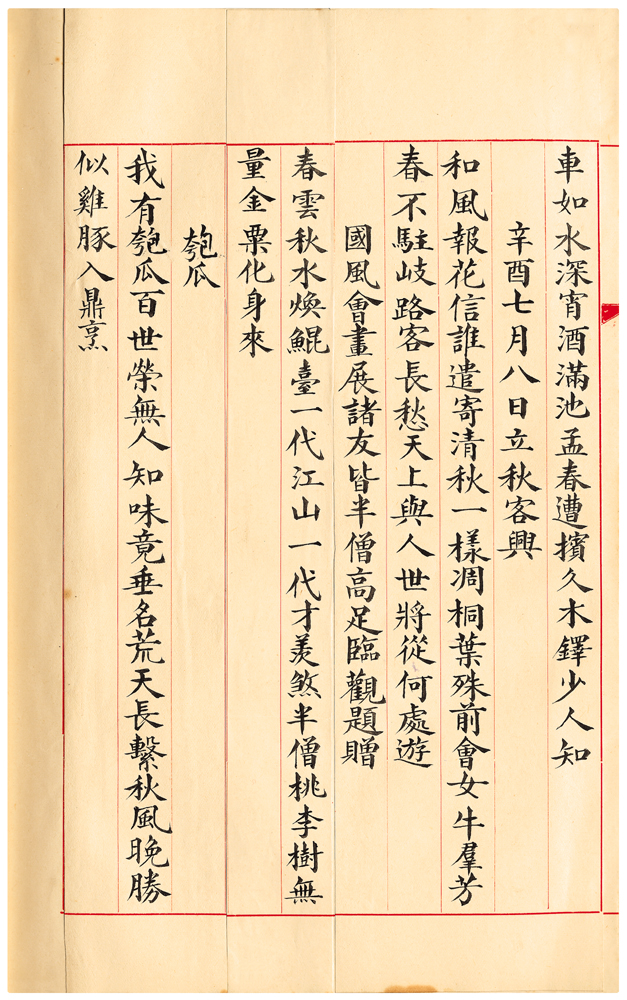 車如水深宵酒滿池孟春遭擯久木鐸少人知
辛酉七月八日立秋客興
和風報花信誰遣寄清秋一樣凋桐葉殊前會女牛羣芳
春不駐歧路客長愁天上與人世將從何處遊
國風會畫展諸友皆半僧高足臨觀題贈
春雲秋水煥鯤臺一代江山一代才羨煞半僧桃李樹無
量金粟化身來
匏瓜
我有匏瓜百世榮無人知味竟垂名荒天長繫秋風晚勝
似雞豚入鼎烹